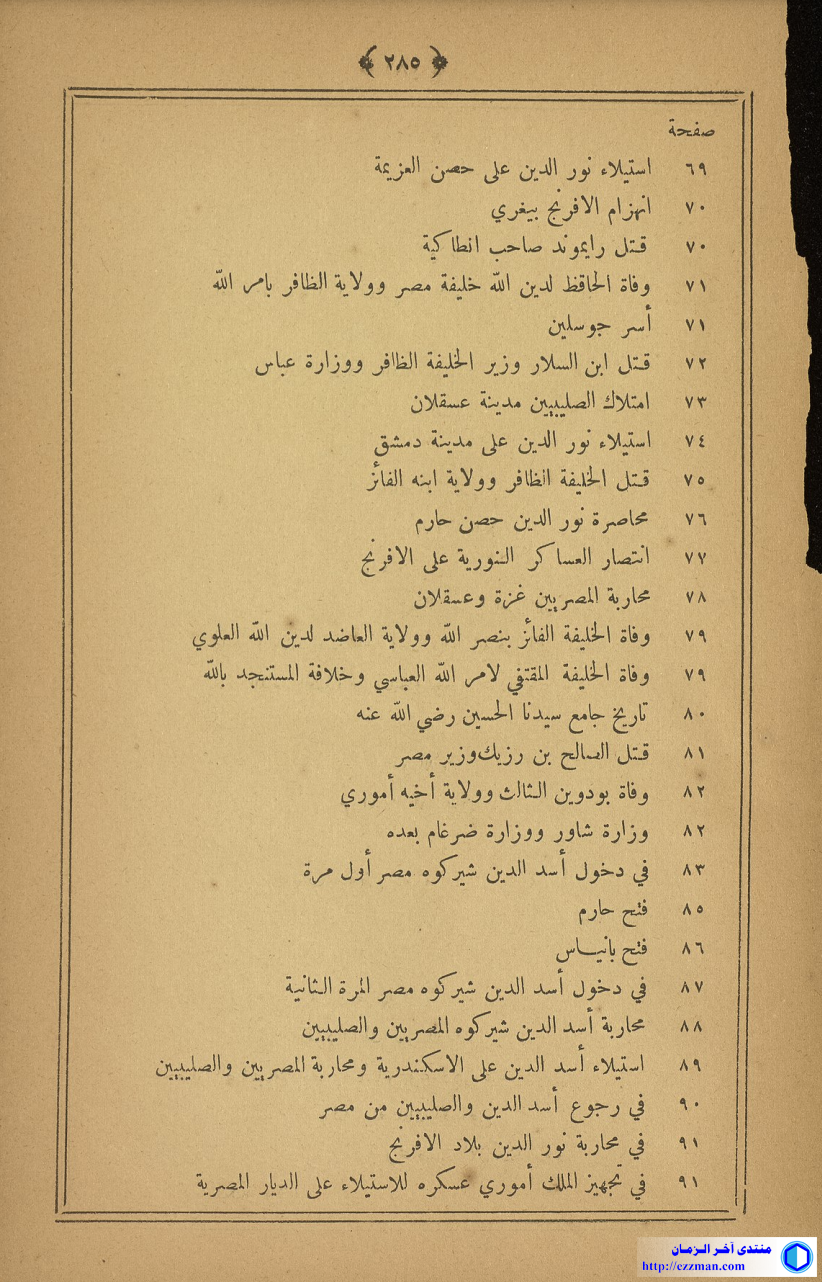 ﴿ ٢٨٥ ﴾
صفحة
٦٩ استيلاء نور الدين على حصن العزيمة
٧٠ انهزام الافرنج بيغري
٧٠ قتل رايموند صاحب انطاكية
٧١ وفاة الحافظ لدين الله خليفة مصر وولاية الظافر بامر الله
٧١ أسر جوسلين
٧٢ قتل ابن السلار وزير الخليفة الظافر ووزارة عباس
٧٣ امتلاك الصليبيين مدينة عسقلان
٧٤ استيلاء نور الدين على مدينة دمشق
٧٥ قتل الخليفة الظافر وولاية ابنه الفائز
٧٦ محاصرة نور الدين حصن حارم
٧٧ انتصار العساكر النورية على الافرنج
٧٨ محاربة المصريين غزة وعسقلان
٧٩ وفاة الخليفة الفائز بنصر الله وولاية العاضد لدين الله العلوي
٧٩ وفاة الخليفة المقتفي لامر الله العباسي وخلافة المستنجد بالله
٨٠ تاريخ جامع سيدنا الحسين رضي الله عنه
٨١ قتل الصالح بن رزيك وزير مصر
٨٢ وفاة بودوين الثالث وولاية أخيه أموري
٨٢ وزارة شاور ووزارة ضرغام بعده
٨٣ في دخول أسد الدين شيركوه مصر أول مرة
٨٥ فتح حارم
٨٦ فتح بانياس
٨٧ في دخول أسد الدين شيركوه مصر المرة الثانية
٨٨ محاربة أسد الدين شيركوه المصريين والصليبيين
٨٩ استيلاء أسد الدين على الاسكندرية ومحاربة المصريين والصليبيين
٩٠ في رجوع أسد الدين والصليبيين من مصر
٩١ في محاربة نور الدين بلاد الافرنج
٩١ في تجهيز الملك أموري عسكره للاستيلاء على الديار المصرية
منتدى آخر الزمان
http://ezzman.com